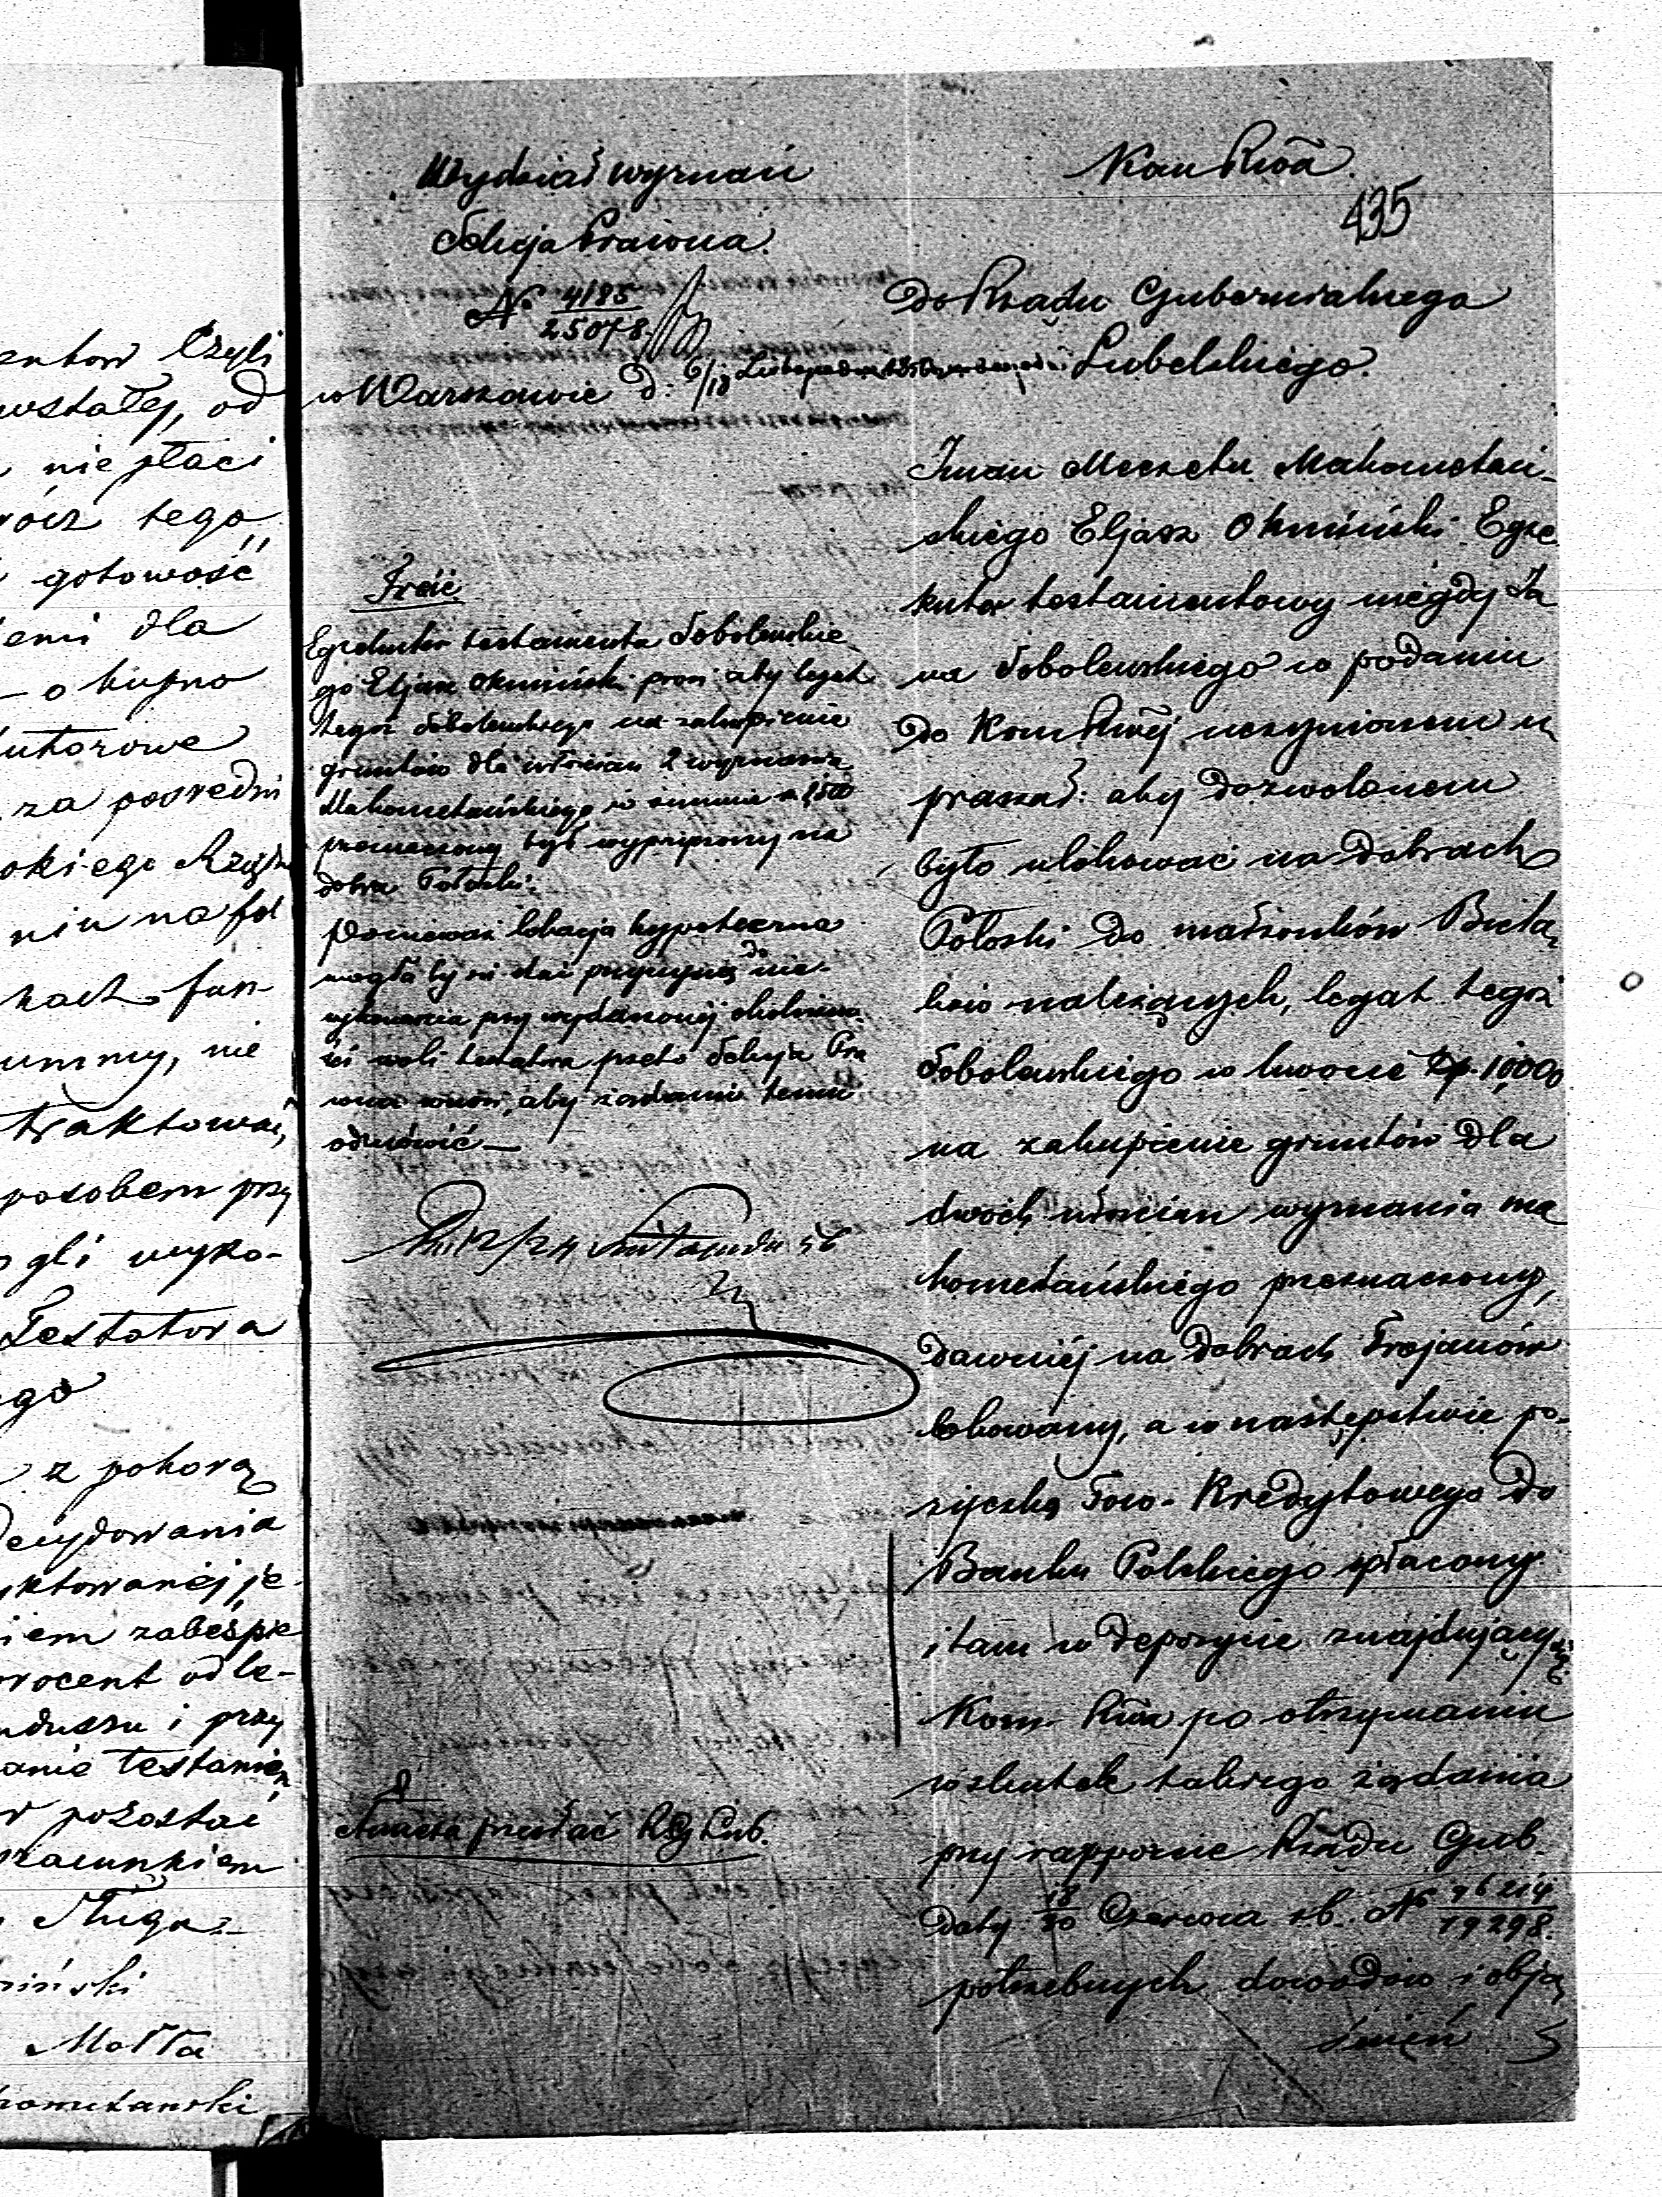 entow Czyli
wstałej, od
nie płaci
rócz tego
gotowość
iemi dla
- o kupno
kutorowe
za posredni
okiego Rządu
niu na fol
kach fun-
ummy, nie
traktować,
posobem przy
ogli wyko-
Testatora
ego
z pokorą
decydowania
yktowanéj je-
iem zabespie
rocent od le-
nduszu i przy
anie testamen
r pozostać
szacunkiem
Sługa
ński
Mołła
hometanski
Wydział wyznań
Sekcja Prawna.
No 4185
25078
w Warszawie d: 6/18 Listopada
Treść
Egzekutor testamentu Sobolewskie
go Eljasz Okmiński prosi aby legat
tegoż Sobolewskiego na zakupienie
gruntów dla włościan 2 wyznania
Mahometańskiego w summie r. 1500
przeznaczony był wypożyczony na
dobra Połoski.
Ponieważ lokacja hypoteczna
mogła by się stać przyczyną do nie-
wykonania przy wydarzonéj okoliczno
ści woli testatora przeto Sekcja Pra
wna wnosi, aby żądaniu temu
odmówić —
12/24 Listopada 56
Annexa przesłać RG Lub.
Kom Rwa.
435
Do Rządu Gubernialnego
Lubelskiego.
Iman Meczetu Mahometań-
skiego Eljasz Okmiński Egze
kutor testamentowy niegdy Ja
na Sobolewskiego w podaniu
do Kom Rwéj uczynionem u
praszał: aby dozwolonem
było ulokować na dobrach
Połoski do małżonków Biela
ków należących, legat tegoż
Sobolewskiego w kwocie Zp. 10,000
na zakupienie gruntów dla
dwóch włościan wyznania ma
hometańskiego przeznaczony,
dawniéj na dobrach Trojanów
lokowany, a w następstwie po-
życzką Tow. Kredytowego do
Banku Polskiego spłacony
i tam w depozycie znajdujący się.
Kom. Rwa po otrzymaniu
wskutek takiego żądania
przy rapporcie Rządu Gub.
daty 18/30 Czerwca rb. No 76214
19298.
potrzebnych dowodów i obja
śnień